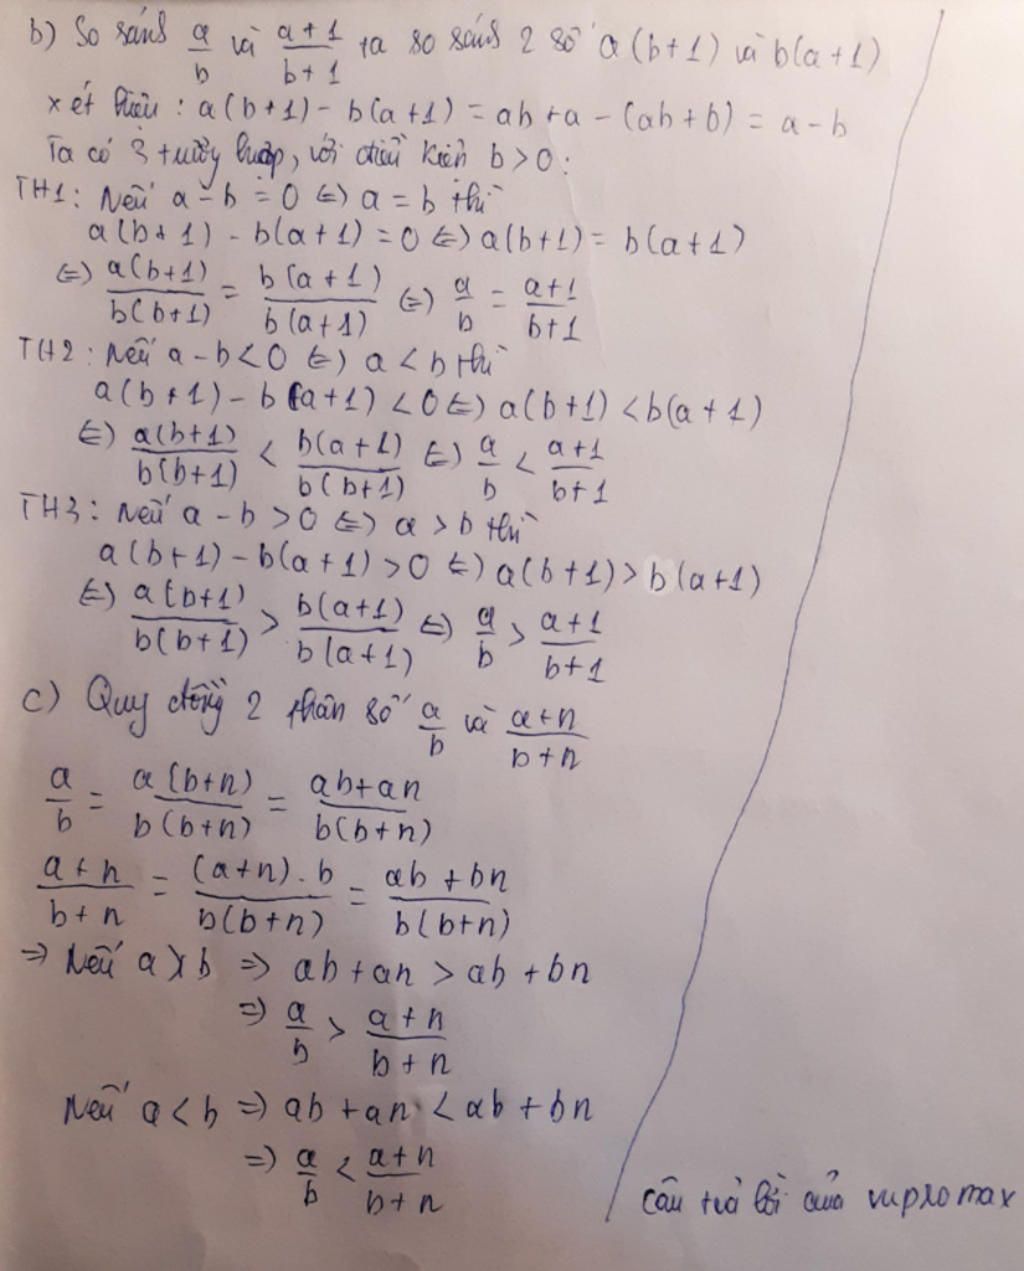 b) So sánh a/b và (a+1)/(b+1) ta so sánh 2 số a(b+1) và b(a+1)
xét hiệu : a(b+1) - b(a+1) = ab+a - (ab+b) = a-b
Ta có 3 trường hợp, với điều kiện b>0:
TH1: Nếu a-b = 0 ⇔ a = b thì
a(b+1) - b(a+1) = 0 ⇔ a(b+1) = b(a+1)
⇔ a(b+1)/b(b+1) = b(a+1)/b(a+1) ⇔ a/b = (a+1)/(b+1)
TH2: Nếu a-b<0 ⇔ a<b thì
a(b+1) - b(a+1) <0 ⇔ a(b+1) <b(a+1)
⇔ a(b+1)/b(b+1) < b(a+1)/b(b+1) ⇔ a/b < (a+1)/(b+1)
TH3: Nếu a-b >0 ⇔ a>b thì
a(b+1) - b(a+1) >0 ⇔ a(b+1) > b(a+1)
⇔ a(b+1)/b(b+1) > b(a+1)/b(a+1) ⇔ a/b > (a+1)/(b+1)
c) Quy đồng 2 phân số a/b và (a+n)/(b+n)
a/b = a(b+n)/b(b+n) = (ab+an)/b(b+n)
(a+n)/(b+n) = (a+n).b/b(b+n) = (ab+bn)/b(b+n)
⇒ Nếu a>b ⇒ ab+an > ab+bn
⇒ a/b > (a+n)/(b+n)
Nếu a<b ⇒ ab+an <ab+bn
⇒ a/b < (a+n)/(b+n)
câu trả lời của vupro max